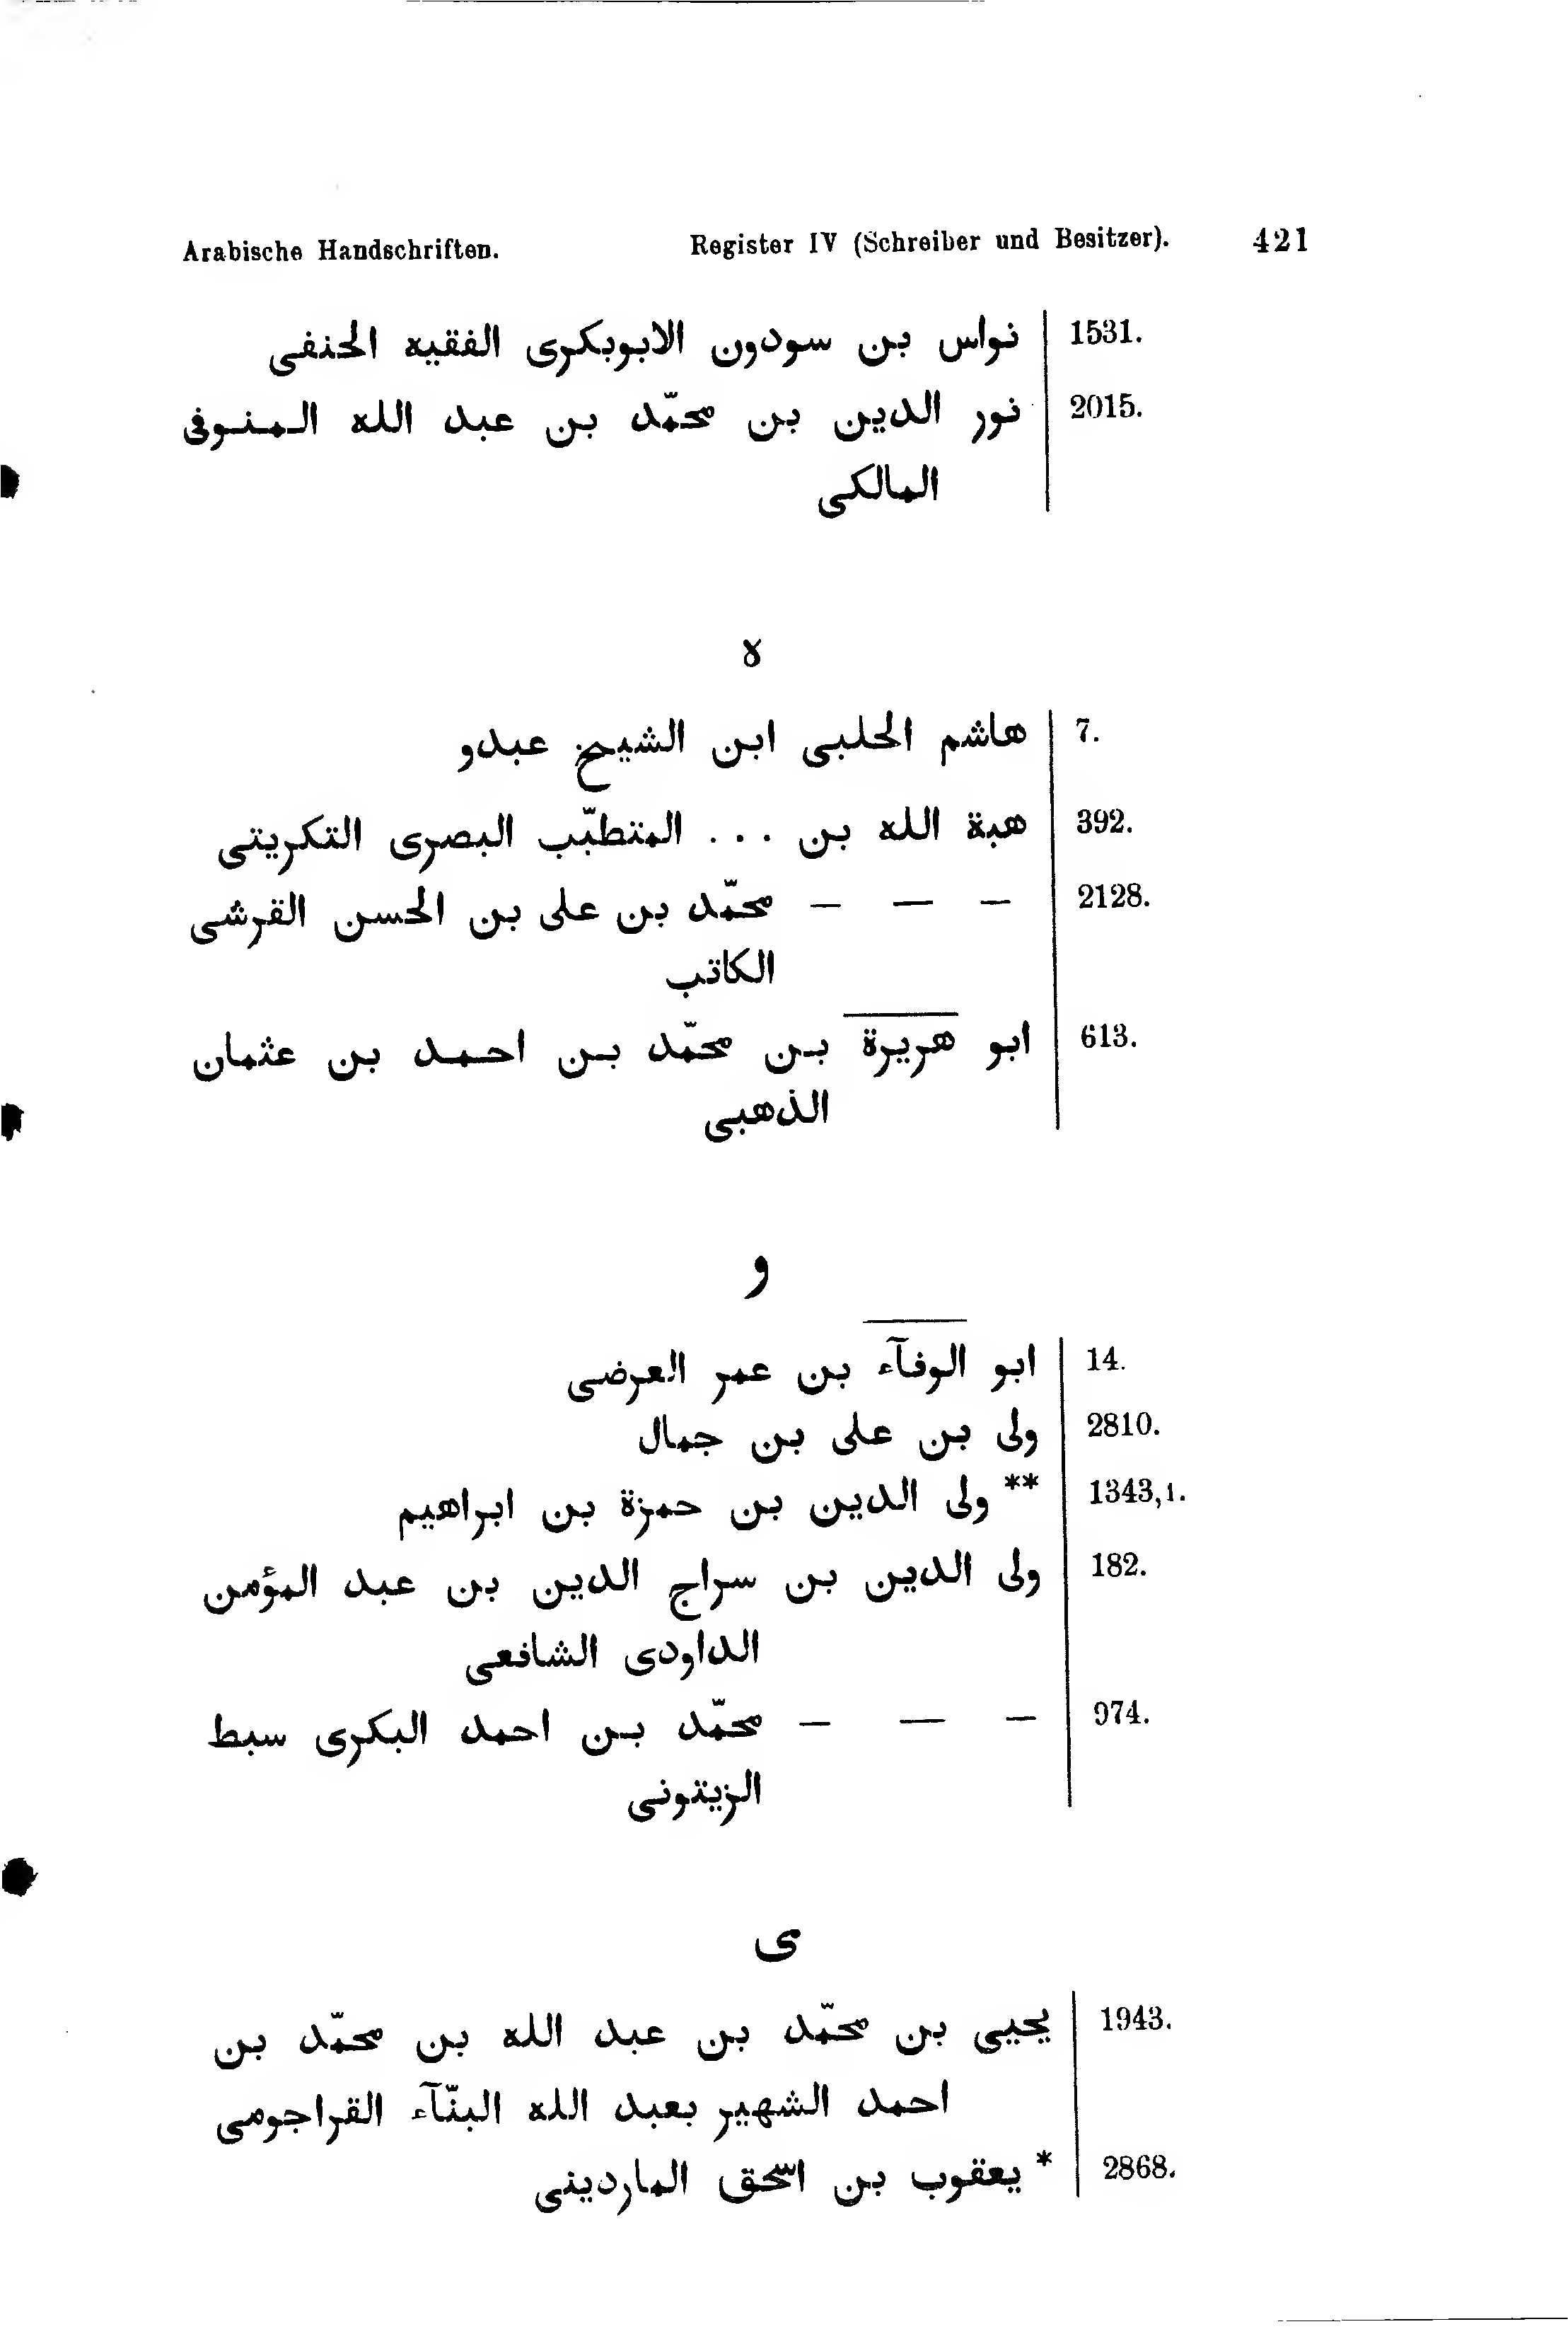 Arabische Handschriften. Register IV (Schreiber und Besitzer). 421
1531. نواس بن سودون الابوبكرى الفقيه الحنفى
2015. نور الدين بن محمّد بن عبد الله المنوفى
المالكى
ه
7. هاشم الحلبى ابن الشيخ عبدو
392. هبة الله بن ... المتطبّب البصرى التكريتى
2128. — — — محمّد بن على بن الحسن القرشى
الكاتب
613. ابو هريرة بن محمّد بن احمد بن عثمان
الذهبى
و
14. ابو الوفآء بن عمر العرضى
2810. ولى بن على بن جمال
1343,1. ** ولى الدين بن حمزة بن ابراهيم
182. ولى الدين بن سراج الدين بن عبد المؤمن
الداودى الشافعى
974. — — — محمّد بن احمد البكرى سبط
الزيتونى
ى
1943. يحيى بن محمّد بن عبد الله بن محمّد بن
احمد الشهير بعبد الله البنّآء القراجومى
2868. * يعقوب بن اسحق الماردينى